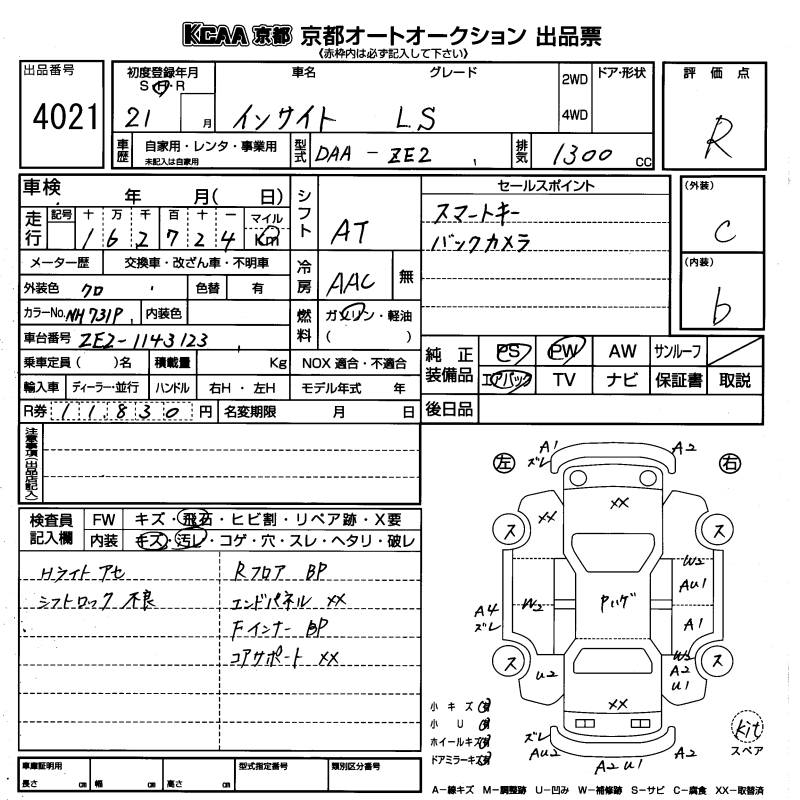 KCAA 京都 京都オートオークション 出品票
《赤枠内は必ず記入して下さい》
出品番号
4021
初度登録年月
S・H・R
21 月
車名 グレード
インサイト LS
2WD
4WD
ドア・形状
評価点
R
車歴
自家用・レンタ・事業用
未記入は自家用
型式
DAA-ZE2
排気
1300 cc
車検 年 月( 日)
走行
記号 十 万 千 百 十 一 マイル
1 6 2 7 2 4 Km
メーター歴 交換車・改ざん車・不明車
外装色 クロ 色替 有
カラーNo. NH731P 内装色
車台番号 ZE2-1143123
乗車定員( )名 積載量 Kg
輸入車 ディーラー・並行 ハンドル 右H・左H
R券 11830 円 名変期限 月 日
シフト
AT
冷房
AAC 無
燃料
ガソリン・軽油
( )
NOX 適合・不適合
モデル年式 年
セールスポイント
スマートキー
バックカメラ
(外装)
C
(内装)
b
純正装備品
PS PW AW サンルーフ
エアバック TV ナビ 保証書 取説
後日品
注意事項(出品店記入)
検査員記入欄
FW キズ・飛石・ヒビ割・リペア跡・X要
内装 キズ・汚し・コゲ・穴・スレ・ヘタリ・破レ
Hライト アセ
シフトロック 不良
Rフロア BP
エンドパネル XX
Fインナー BP
コアサポート XX
左 右
A1
ズレ
A2
XX
XX
ス ス
W2
AU1
A4
ズレ
W2
A1
W3
A2
U1
ス ス
U2
XX
ズレ
AU2
A2 U1
A2
小キズ
小U
ホイールキズ
ドアミラーキズ
kit
スペア
車庫証明用
長さ cm 幅 cm 高さ cm
型式指定番号
類別区分番号
A-線キズ M-調整跡 U-凹み W-補修跡 S-サビ C-腐食 XX-取替済